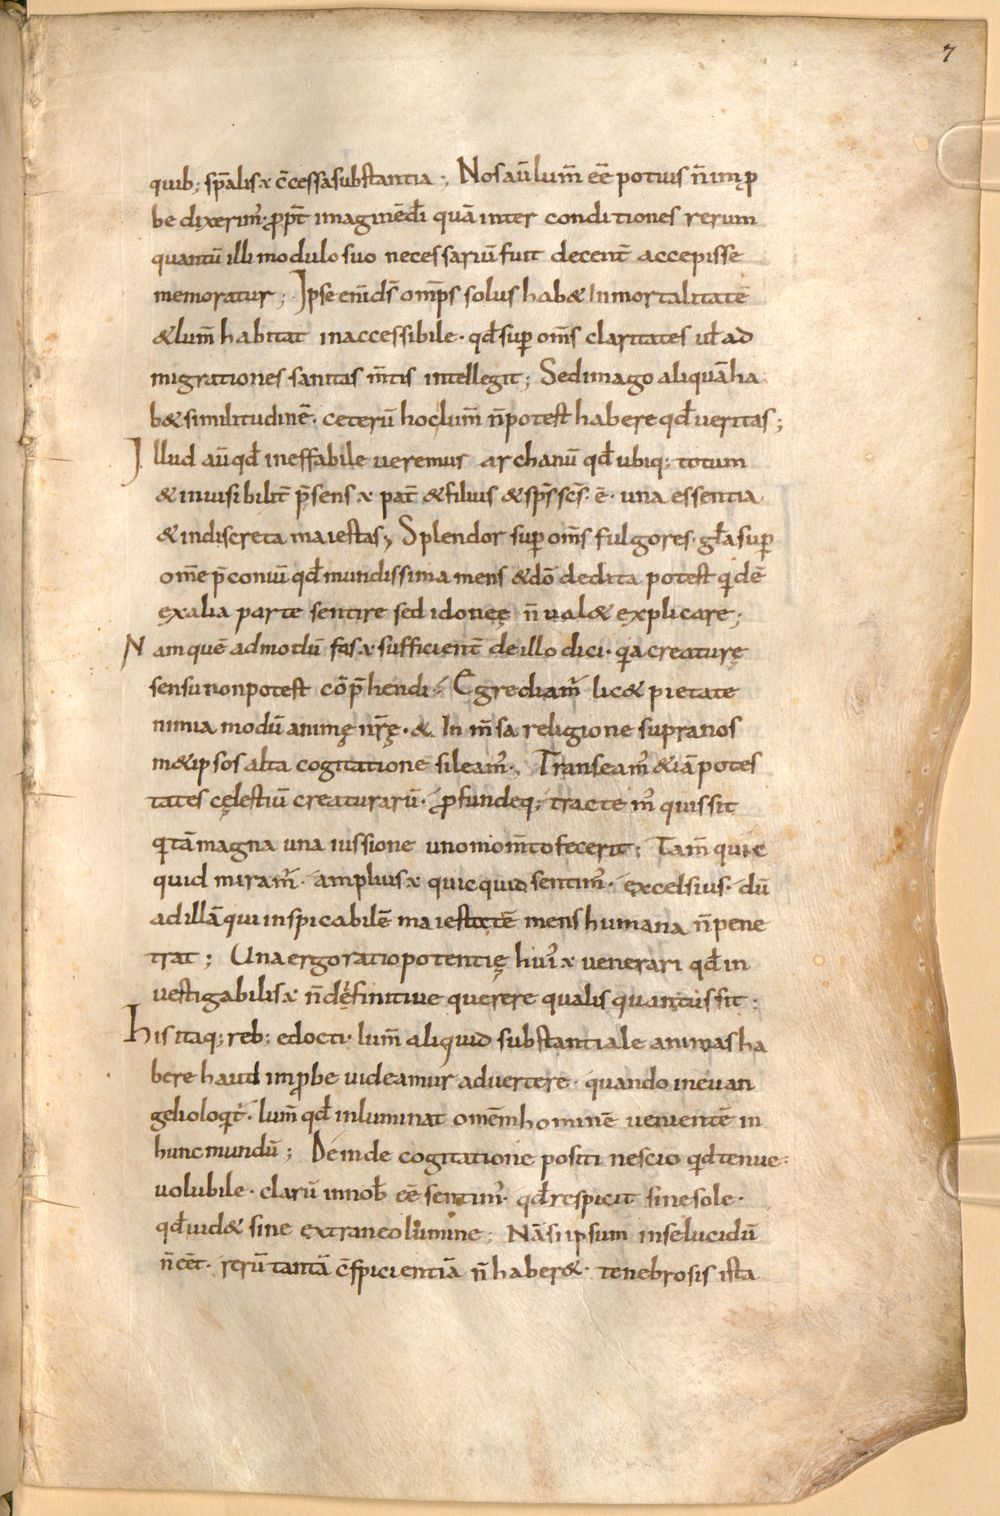 7
quib; sp̄alis ÷ c̄cessa substantia ·; Nos aū lum̄ eē potius n̄ imp
be dixerim᾽· ꝓpt̄ imaginē dī quā inter conditiones rerum
quantū illi modulo suo necessariū fuit decent̄ accepisse
memoratur; Ipse enī ds̄ omp̄s solus hab& Inmortalitatē
&lum̄ habitat inaccessibile· qđ sup om̄s claritates uł ad
migrationes sanitas m̄tis intellegit; Sed imago aliquā ha
b& similitudinē· ceterū hoc lum̄ n̄ potest habere qđ ueritas;
Illud aū qđ ineffabile ueremur archanū qđ ubiq; totum
& inuisibilit̄ p̄sens ÷ pat̄ &filius &sps̄ scs̄· ē· una essentia
&indiscreta maiestas; Splendor sup om̄s fulgores· głasup
om̄e p̄coniū qđ mundissima mens &dō dedita potest qidē
ex alia parte sentire sed idoneę n̄ ual& explicare;
Nam quē admodū fas ÷ sufficient̄ de illo dici· qa creaturę
sensu non potest cōp̄hendi; Egrediam᾽ lic& pietate
nimia modū animę nr̄ę· &. In m̄sa religione supra nos
m&ipsos alta cogitatione sileam᾽·, Transeam᾽ &iā potes
tates cęlestiū creaturarū· ꝓfundeq; tractem᾽ quis sit
q tā magna una iussione uno mom̄to fecerit; Tam̄ quic
quid miram᾽· amplius ÷ quicquid sentim᾽· excelsius· dū
ad illā qui inspicabilē maiestatē mens humana n̄ pene
trat; Una ergo ratio potentię hui᾽ ÷ uenerari qđ in
uestigabilis ÷ n̄ definitiue querere qualis quantus sit;
His itaq; reb; edocti· lum̄ aliquid substantiale animas ha
bere haud imꝓbe uideamur aduertere· quando in euan
gelio loqt̄᾽· lum̄ qđ inluminat omēm hominē uenientē in
hunc mundū; Deinde cogitatione positi nescio qid tenue·
uolubile· clarū in nob̄ eē sentim᾽· qđ respicit sine sole·
qđ uid& sine extraneo lumine; Nā si ipsum in se lucidū
n̄ eēt· rerū tantā c̄spicientiā n̄ haber&· tenebrosis ista